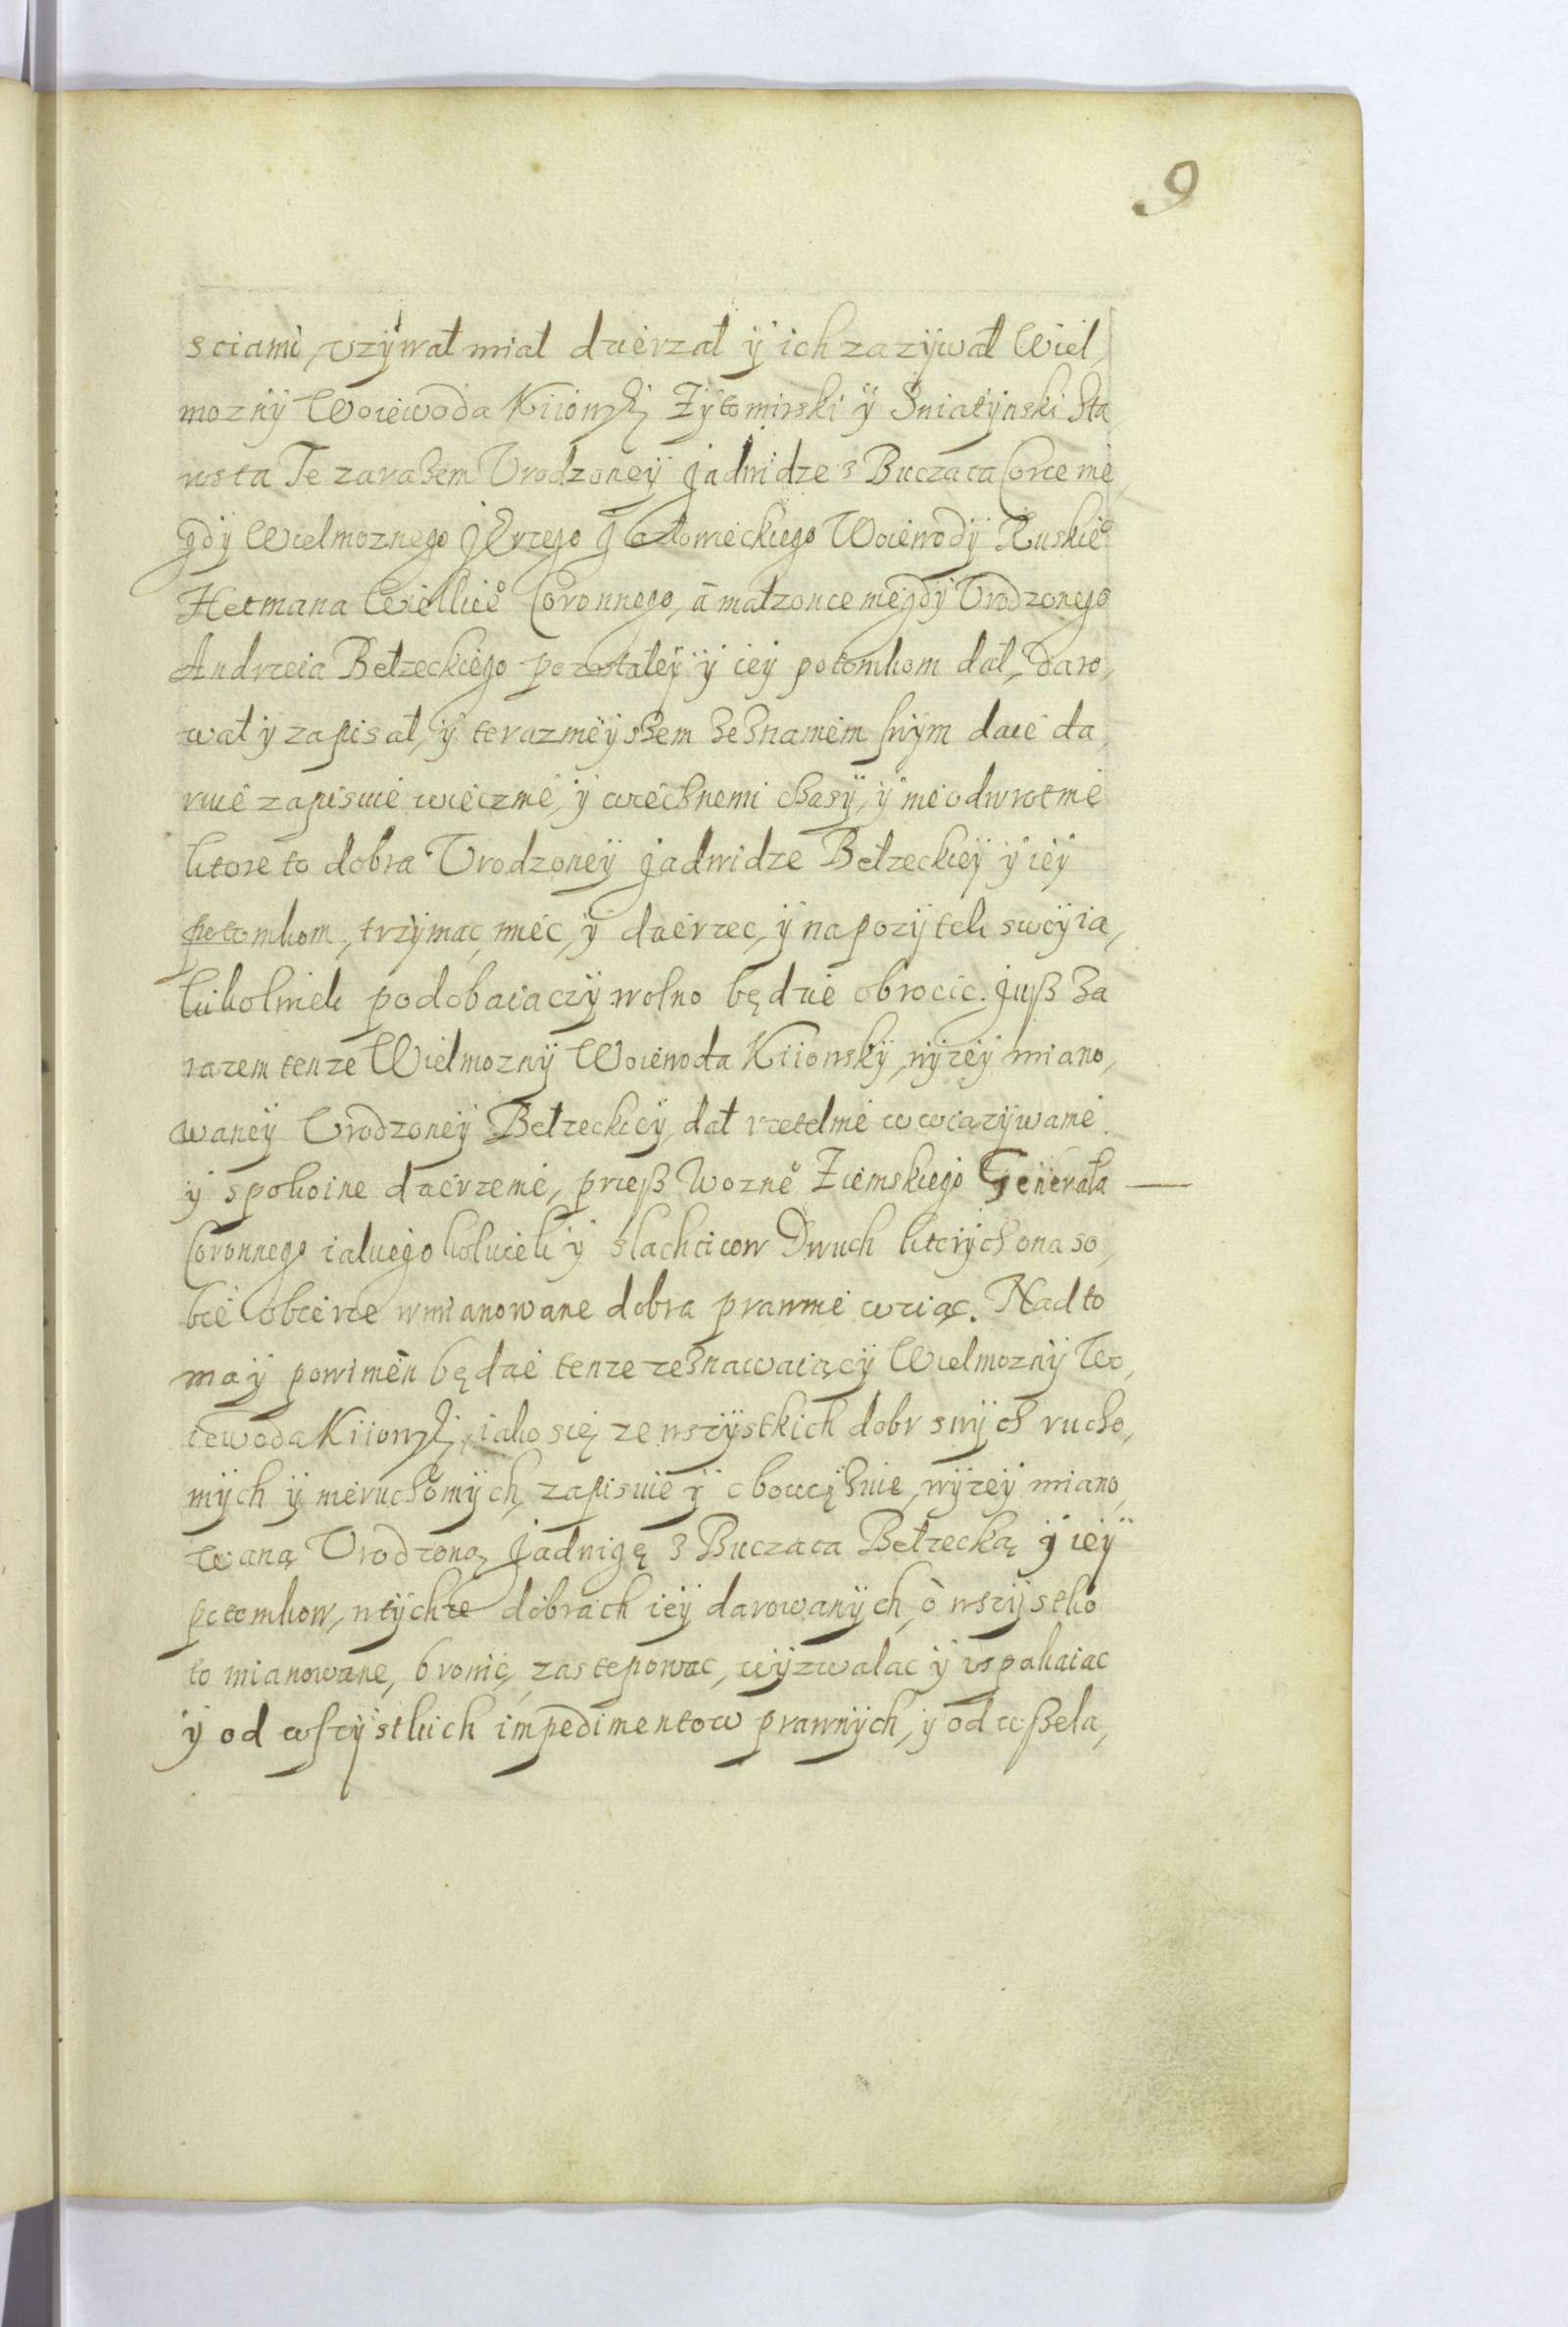 9
sciami, vzÿwał miał dzierzał ÿ ich zazÿwał Wiel,
moznÿ Woiewoda Kiiowskj Zÿtomirski ÿ Sniatÿnski Sta,
rosta Te zarazem Vrodzoneÿ Jadwidze z Buczaca Corce nie,
gdÿ Wielmoznego Jerzego Jazłowieckiego Woiewodÿ Ruskie°
Hetmana Wielkie° Coronnego, á małzonce niegdÿ Vrodzonego
Andrzeia Bełzeckiego pozostałeÿ ÿ ieÿ potomkom dał, Daro,
wał ÿ zapisał, ÿ teraznieÿszem zeznaniem swÿm daie da,
ruie zapisuie wiecznie, ÿ wiecznemi czasÿ, ÿ nieodwrotnie
ktore to dobra Vrodzoneÿ Jadwidze Bełzeckieÿ ÿ ieÿ
potomkom, trzÿmac, miec, ÿ dzierzec, ÿ na pozÿtek swoÿ ia,
kikolwiek podobaiaczÿ wolno będzie obrocic. Juß za
razem tenze Wielmoznÿ Woiewoda Kiiowskÿ, wÿzeÿ miano,
waneÿ Vrodzoneÿ Bełzeckieÿ, dał rzetelnie wwiązÿwanie
ÿ spokoine dzierzenie, przeß Wozne° Ziemskiego Generała
Coronnego iakiegokolwiek ÿ slachcicow Dwuch ktorÿch ona so,
bie obierze w mianowane dobra prawnie wziąc. Nad to
ma ÿ powinien będzie tenze zeznawaiącÿ Wielmoznÿ Wo,
iewoda Kiiowskj, iako się ze wszÿstkich dobr swÿch rucho,
mÿch ÿ nieruchomÿch, zapisuie ÿ obowięzuie, wÿzeÿ miano,
waną Vrodzoną Jadwigę z Buczaca Bełzecką ÿ ieÿ
potomkow, w tÿchze dobrach ieÿ darowanÿch, ò wszÿstko
to mianowane, bronic, zastepowac, wÿzwalac ÿ vspakaiac
ÿ od wszÿstkich impedimentow prawnÿch, ÿ od wßela,